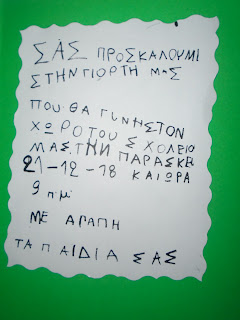 ΣΑΣ ΠΡΟΣΚΑΛΟΥΜΙ
ΣΤΗΝ ΓΙΟΡΤΗ ΜΑΣ
ΠΟΥ ΘΑ ΓΙΝΗ ΣΤΟΝ
ΧΩΡΟ ΤΟΥ ΣΧΟΛΕΙΟ
ΜΑΣ ΤΗΝ ΠΑΡΑΣΚΕΙ
21-12-18 ΚΑΙ ΩΡΑ
9 π.μ.
ΜΕ ΑΓΑΠΗ
ΤΑ ΠΑΙΔΙΑ ΣΑΣ